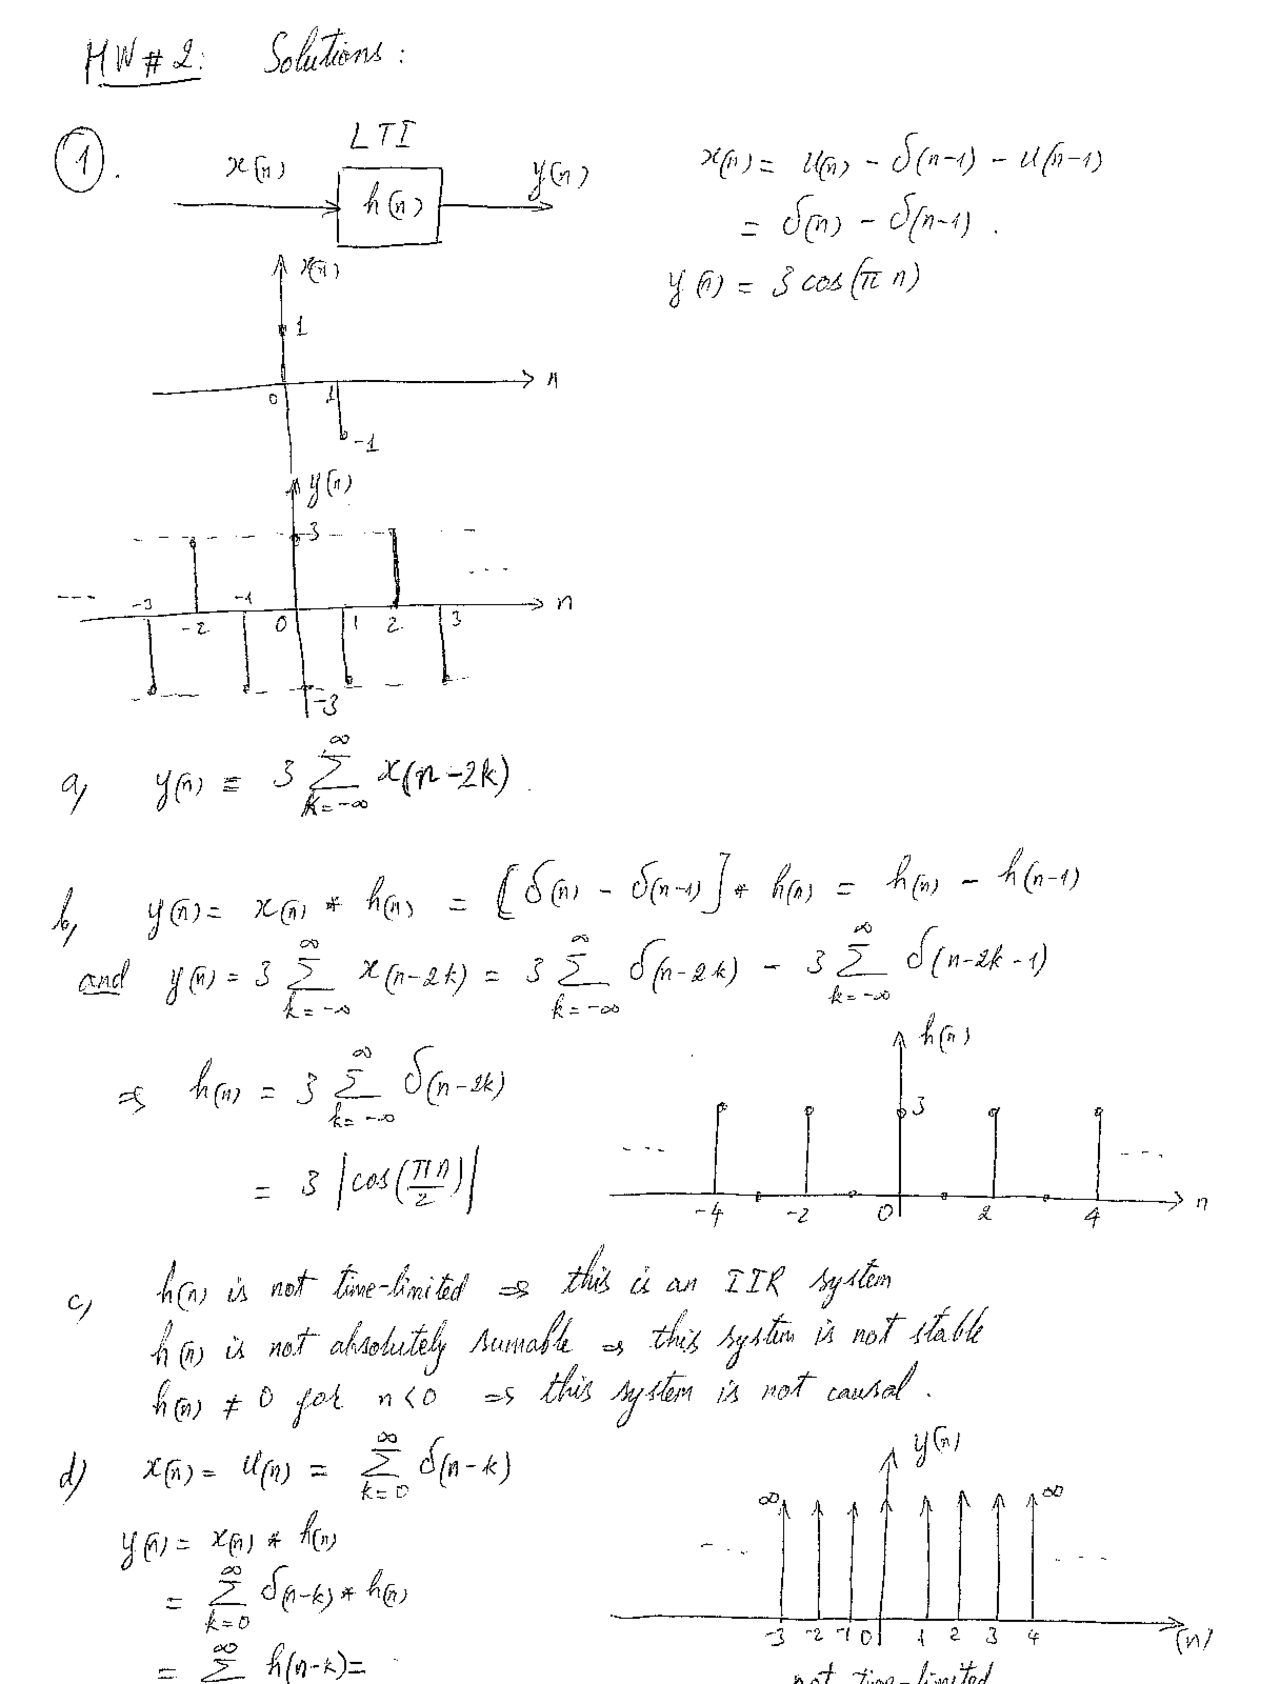 HW # 2: Solutions:
1.
LTI
x(n) h(n) y(n)
x(n) = u(n) - δ(n-1) - u(n-1)
= δ(n) - δ(n-1).
y(n) = 3 cos(π n)
x(n)
1
n
0 1
-1
y(n)
3
... -3 -2 -1 0 1 2 3 n ...
-3
a) y(n) = 3 ∑_{k=-∞}^{∞} x(n-2k).
b) y(n) = x(n) * h(n) = [δ(n) - δ(n-1)] * h(n) = h(n) - h(n-1)
and y(n) = 3 ∑_{k=-∞}^{∞} x(n-2k) = 3 ∑_{k=-∞}^{∞} δ(n-2k) - 3 ∑_{k=-∞}^{∞} δ(n-2k-1)
⇒ h(n) = 3 ∑_{k=-∞}^{∞} δ(n-2k)
= 3 |cos(πn/2)|
h(n)
3
... ...
-4 -2 0 2 4 n
c) h(n) is not time-limited ⇒ this is an IIR system
h(n) is not absolutely sumable ⇒ this system is not stable
h(n) ≠ 0 for n<0 ⇒ this system is not causal.
d) x(n) = u(n) = ∑_{k=0}^{∞} δ(n-k)
y(n) = x(n) * h(n)
= ∑_{k=0}^{∞} δ(n-k) * h(n)
= ∑^{∞} h(n-k) =
y(n)
∞ ∞
... ...
-3 -2 -1 0 1 2 3 4 (n)
not time-limited